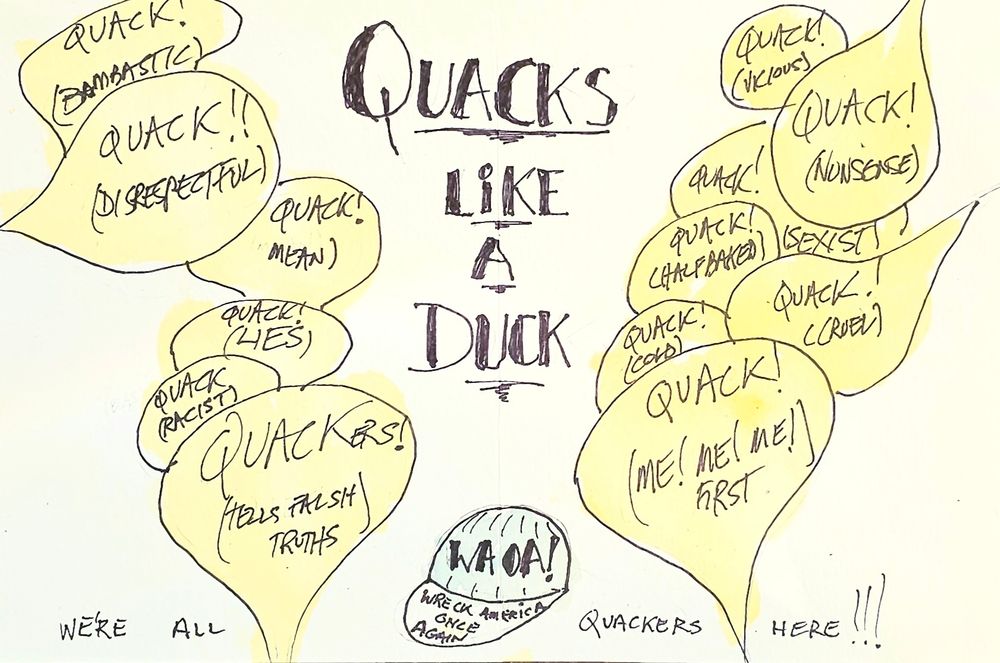 QUACK!
(BAMBASTIC)
QUACK!!
(DISRESPECTFUL)
QUACK!
MEAN)
QUACK!
(LIES)
QUACK
(RACIST)
QUACKERS!
(TELLS FALSH
TRUTHS
QUACKS
LiKE
A
DUCK
QUACK!
(VICIOUS)
QUACK!
(NUNSENSE)
QUACK!
(SEXIST)
QUACK!
(HALFBAKED)
QUACK!
(CRUEL)
QUACK!
(COLD)
QUACK!
(ME! ME! ME!)
FIRST
WAOA!
WRECK AMERICA
ONCE
AGAIN
WE'RE ALL QUACKERS HERE!!!